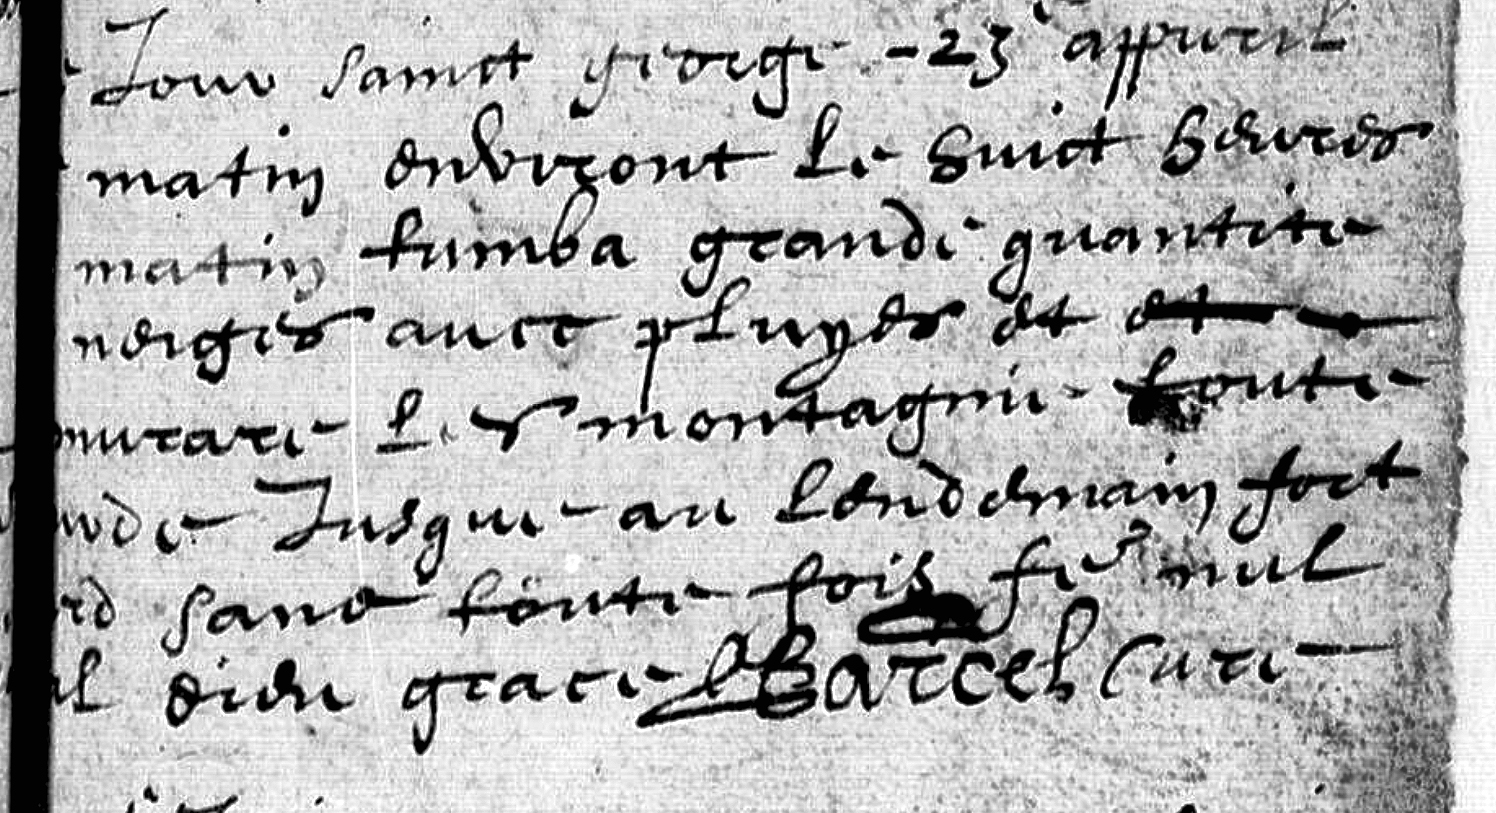 Jour sainct george - 23 appvril
matin environt le huict heures
matin tumba grande quantite
neiges avec pluyes et
les montagnie toute
Jusque au lendemain fort
sans toute fois fe nul
dieu grace Barcel Cure